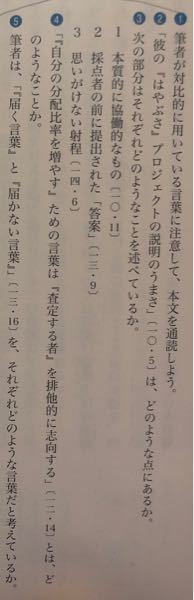 ❶ 筆者が対比的に用いている言葉に注意して、本文を通読しよう。
❷ 「彼の『はやぶさ』プロジェクトの説明のうまさ」〔一〇・5〕は、どのような点にあるか。
❸ 次の部分はそれぞれどのようなことを述べているか。
1 本質的に協働的なもの〔一〇・11〕
2 採点者の前に提出された「答案」〔一三・9〕
3 思いがけない射程〔一四・6〕
❹ 「『自分の分配比率を増やす』ための言葉は『査定する者』を排他的に志向する」〔一二・14〕とは、ど
のようなことか。
❺ 筆者は、「『届く言葉』と『届かない言葉』」〔一三・16〕を、それぞれどのような言葉だと考えているか。